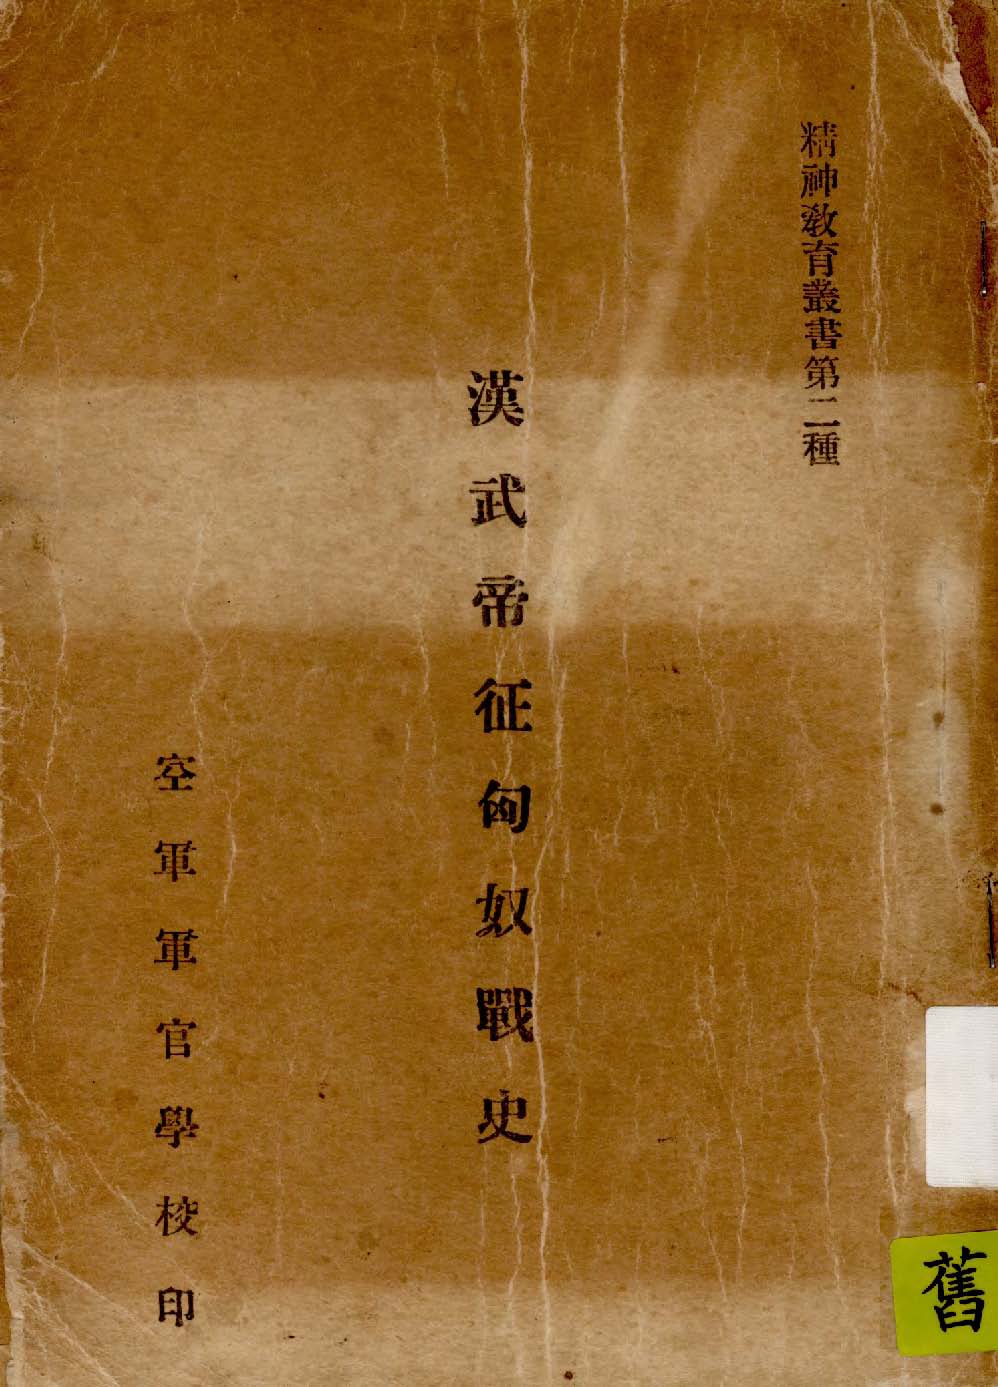 精神教育叢書第二種
漢武帝征匈奴戰史
空軍軍官學校印
舊